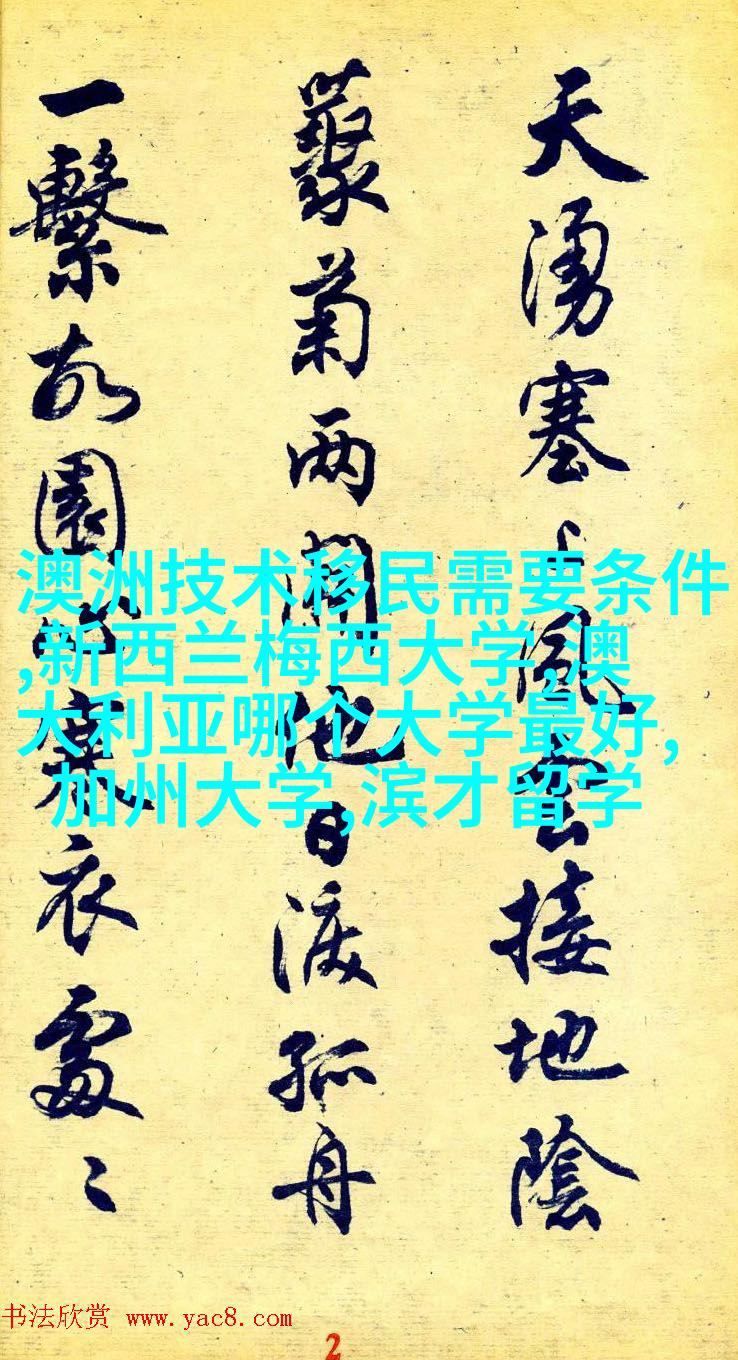 天湧塞上風雲接地陰
叢菊两開他日淚孤舟
一繫故園心寒衣處〻
澳洲技术移民需要条件
,新西兰梅西大学,澳
大利亚哪个大学最好,
加州大学,滨才留学
书法欣赏 www.yac8.com
2